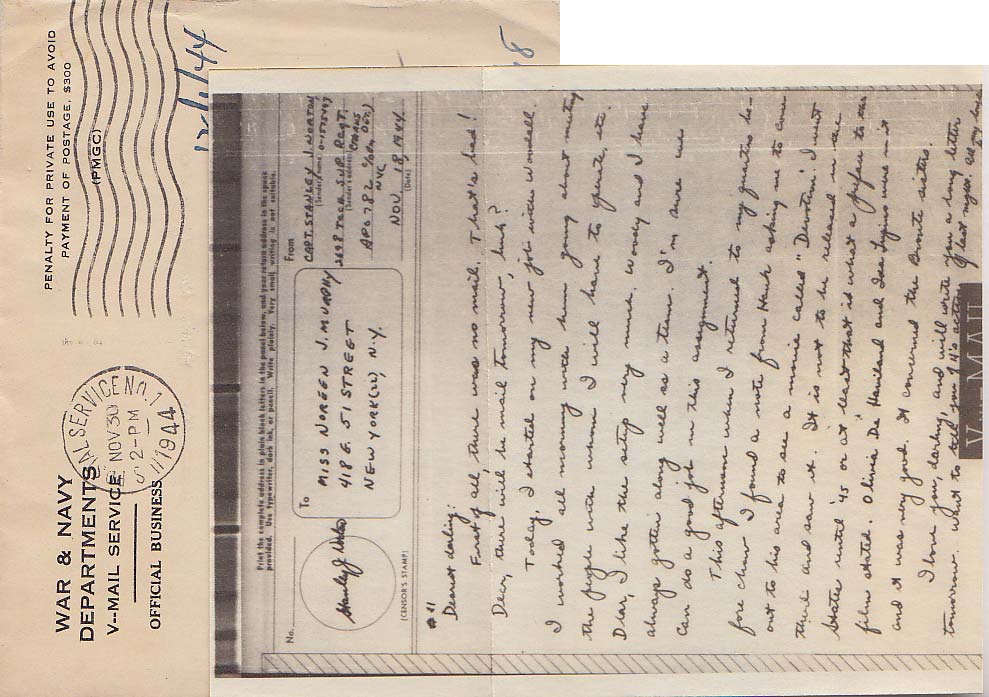 WAR & NAVY
DEPARTMENTS
V--MAIL SERVICE
OFFICIAL BUSINESS
AL SERVICE NO. 1
NOV 30
2-PM
1944
PENALTY FOR PRIVATE USE TO AVOID
PAYMENT OF POSTAGE, $300
(PMGC)
12/1/44
Print the complete address in plain block letters in the panel below, and your return address in the space
provided. Use typewriter, dark ink, or pencil. Write plainly. Very small writing is not suitable.
No.
(CENSOR'S STAMP)
To
MISS NOREEN J. MURPHY
418 E. 51 STREET
NEW YORK (22), N.Y.
From
CAPT. STANLEY J. NORTON
(Sender's name)
2698 TECH. SUP. REGT.
(Sender's address)
APO 782 % PM
NYC
NOV. 18, 1944
(Date)
#1
Dearest darling:
First of all, there was no mail. That's bad!
Dear, there will be mail tomorrow, huh?
Today, I started on my new job with Woodall.
I worked all morning with him going about meeting
the people with whom I will have to operate, etc.
Dear, I like the setup very much. Woody and I have
always gotten along well as a team. I'm sure we
can do a good job on this assignment.
This afternoon when I returned to my quarters be-
fore chow I found a note from Hank asking me to come
out to his area to see a movie called "Devotion". I went
there and saw it. It is not to be released in the
States until '45 or at least that is what a preface to the
film stated. Olivia De Haviland and Ida Lupino were in it
and it was very good. It concerned the Bronte sisters.
I love you, darling, and will write you a long letter
tomorrow. Want to tell you of last night. All my love
V-MAIL